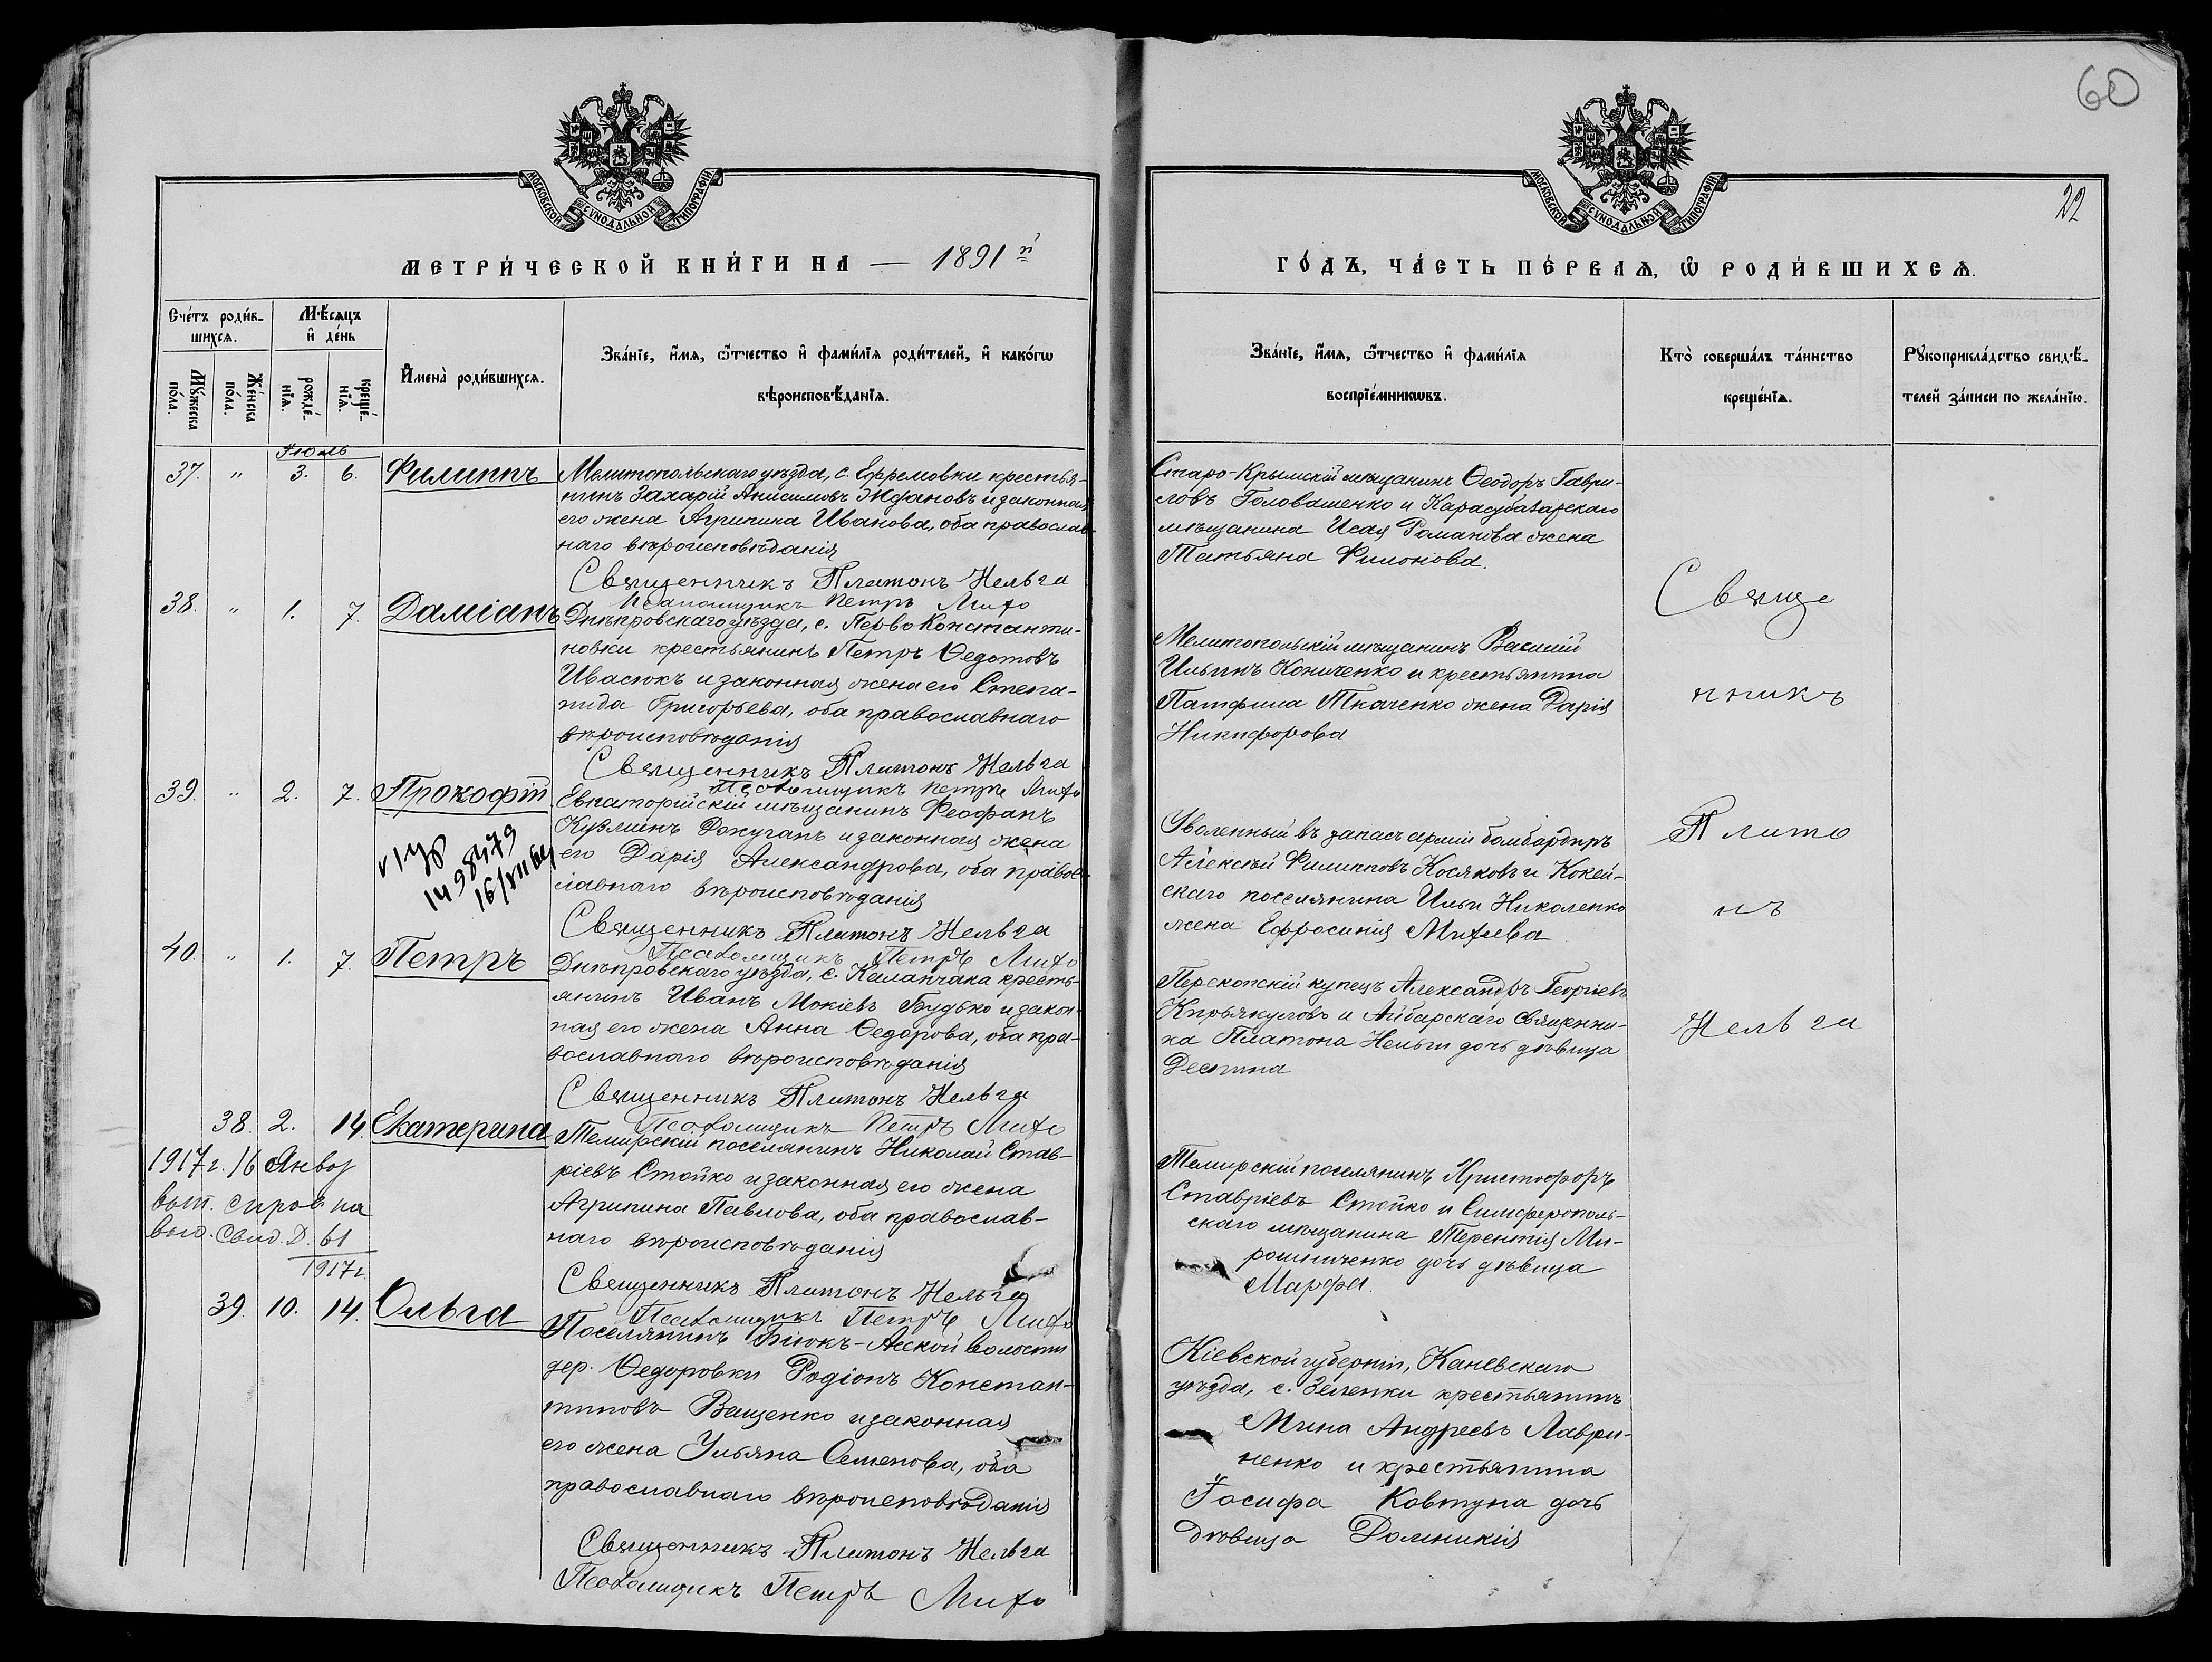 60
22
МОСКОВСКОЙ СѴНОДАЛЬНОЙ ТИПОГРАФІИ
МОСКОВСКОЙ СѴНОДАЛЬНОЙ ТИПОГРАФІИ
МЕТРИ́ЧЕСКОЙ КНИ́ГИ НА — 1891й
ГО́ДЪ, ЧА́СТЬ ПЕ́РВАѦ, Ѽ РОДИ́ВШИХСѦ.
Сче́тъ роди́в-
шихсѧ.
Мꙋ́жеска по́ла.
Же́нска по́ла.
Мѣ́сяцъ
и҆ де́нь
рожде́-
нїѧ.
креще́-
нїѧ.
И҆мена̀ роди́вшихсѧ.
Зва́нїе, и҆́мѧ, ѻ҆́тчество и҆ фами́лїѧ роди́телей, и҆ како́гѡ
вѣроисповѣ́данїѧ.
Зва́нїе, и҆́мѧ, ѻ҆́тчество и҆ фами́лїѧ
воспрїе́мникѡвъ.
Кто̀ соверша́лъ та́инство
креще́нїѧ.
Рꙋкоприкла́дство свидѣ́-
телей за́писи по жела́нїю.
Іюль
37. " 3. 6. Филиппъ
Мелитопольскаго уѣзда, с. Ефремовки крестья-
нинъ Захарій Анисимовъ Ждановъ и законная
его жена Агрипина Иванова, оба православ-
наго вѣроисповѣданія
Священникъ Платонъ Нельга
Псаломщикъ Петръ Михо
Старо-Крымскій мѣщанинъ Ѳеодоръ Гаври-
ловъ Головашенко и Карасубазарскаго
мѣщанина Исая Романова жена
Татьяна Филонова.
38. " 1. 7. Даміанъ
Днѣпровскаго уѣзда, с. Перво Константи-
новки крестьянинъ Петръ Ѳедотовъ
Ивасюкъ и законная жена его Степа-
нида Григорьева, оба православнаго
вѣроисповѣданія
Священникъ Платонъ Нельга
Псаломщикъ Петръ Михо
Мелитопольскій мѣщанинъ Василій
Ильинъ Кониченко и крестьянина
Памфила Ткаченко жена Дарія
Никифорова
39. " 2. 7. Прокофій
1498479
Евпаторійскій мѣщанинъ Феофанъ
Кузминъ Докучанъ и законная жена
его Дарія Александрова, оба право-
славнаго вѣроисповѣданія
Священникъ Платонъ Нельга
Псаломщикъ Петръ Михо
Уволенный въ запасъ арміи бомбардиръ
Алексѣй Филипповъ Косяковъ и Кокей-
скаго поселянина Ильи Николенко
жена Ефросинія Михеева
40. " 1. 7. Петръ
Днѣпровскаго уѣзда, с. Каланчака кресть-
янинъ Иванъ Мокіевъ Будько и закон-
ная его жена Анна Ѳедорова, оба пра-
вославнаго вѣроисповѣданія
Священникъ Платонъ Нельга
Псаломщикъ Петръ Михо
Перекопскій купецъ Александръ Георгіевъ
Кирьякуловъ и Айбарскаго священни-
ка Платона Нельги дочь дѣвица
Деспина
38. 2. 14. Екатерина
1917 г. 16 Январ
вып. справ. на
выд. свид. Д. 61
1917 г.
Темирскій поселянинъ Николай Став-
ріевъ Стойко и законная его жена
Агрипина Павлова, оба православ-
наго вѣроисповѣданія
Священникъ Платонъ Нельга
Псаломщикъ Петръ Михо
Темирскій поселянинъ Христофоръ
Ставріевъ Стойко и Симферополь-
скаго мѣщанина Терентія Ми-
рошниченко дочь дѣвица
Марфа.
39. 10. 14. Ольга
Поселянинъ Біюкъ-Асской волости
дер. Ѳедоровки Родіонъ Констан-
тиновъ Ващенко и законная
его жена Ульяна Семенова, оба
православнаго вѣроисповѣданія
Священникъ Платонъ Нельга
Псаломщикъ Петръ Михо
Кіевской губерніи, Каневскаго
уѣзда, с. Зеленки крестьянинъ
Мина Андреевъ Лаври-
ненко и крестьянина
Іосифа Ковтуна дочь
дѣвица Домникія
Свяще
нникъ
Плато
нъ
Нельга